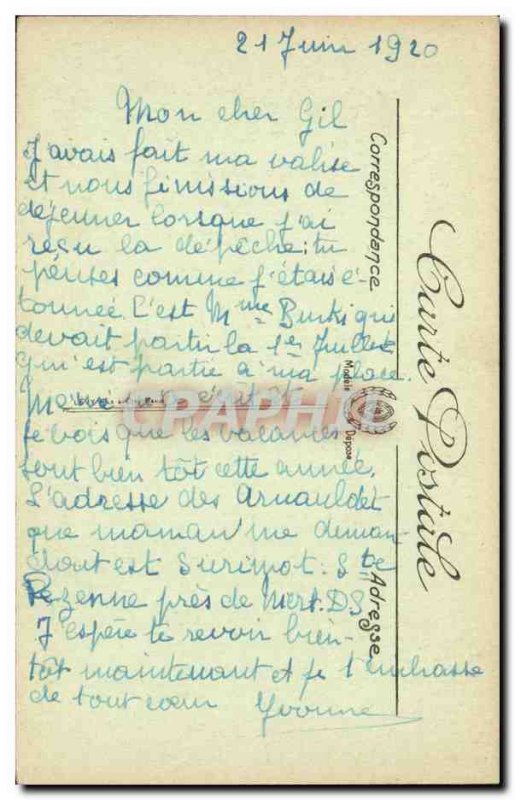 21 Juin 1920
Mon cher Gil
J'avais fait ma valise
et nous finissions de
déjeuner lorsque j'ai
reçu la dépêche; tu
penses comme j'étais é-
tonnée. C'est Mme Burki qui
devait partir la 1er Juillet
qui est partie à ma place.
je vois que les vacances
sont bien tôt cette année.
L'adresse des Arnauldet
que maman me deman
dait est Surimot. Ste
Pezenne près de Niort. D.S.
J'espère te revoir bien-
tôt maintenant et je t'embrasse
de tout cœur Yvonne
Carte Postale
Correspondance
Modèle Déposé
Adresse
PRPhoto.com